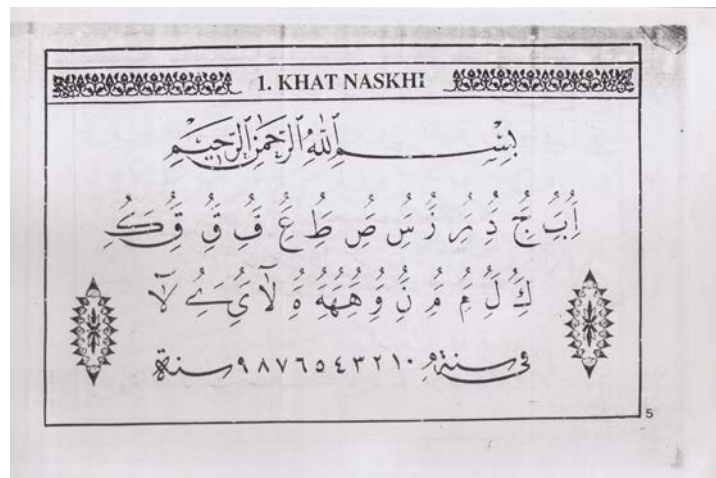 1. KHAT NASKHI
بِسْمِ اللّٰهِ الرَّحْمٰنِ الرَّحِيْمِ
اُبُ جُ دُ رُ زُ سُ صُ طُ عُ فُ قُ قُ كُ
كُ لُ مُ مُ نُ وُ هُهُهُ هُ لَا يُ ےُ لَا
في سنة ٠ ١ ٢ ٣ ٤ ٥ ٦ ٧ ٨ ٩ سنة
5